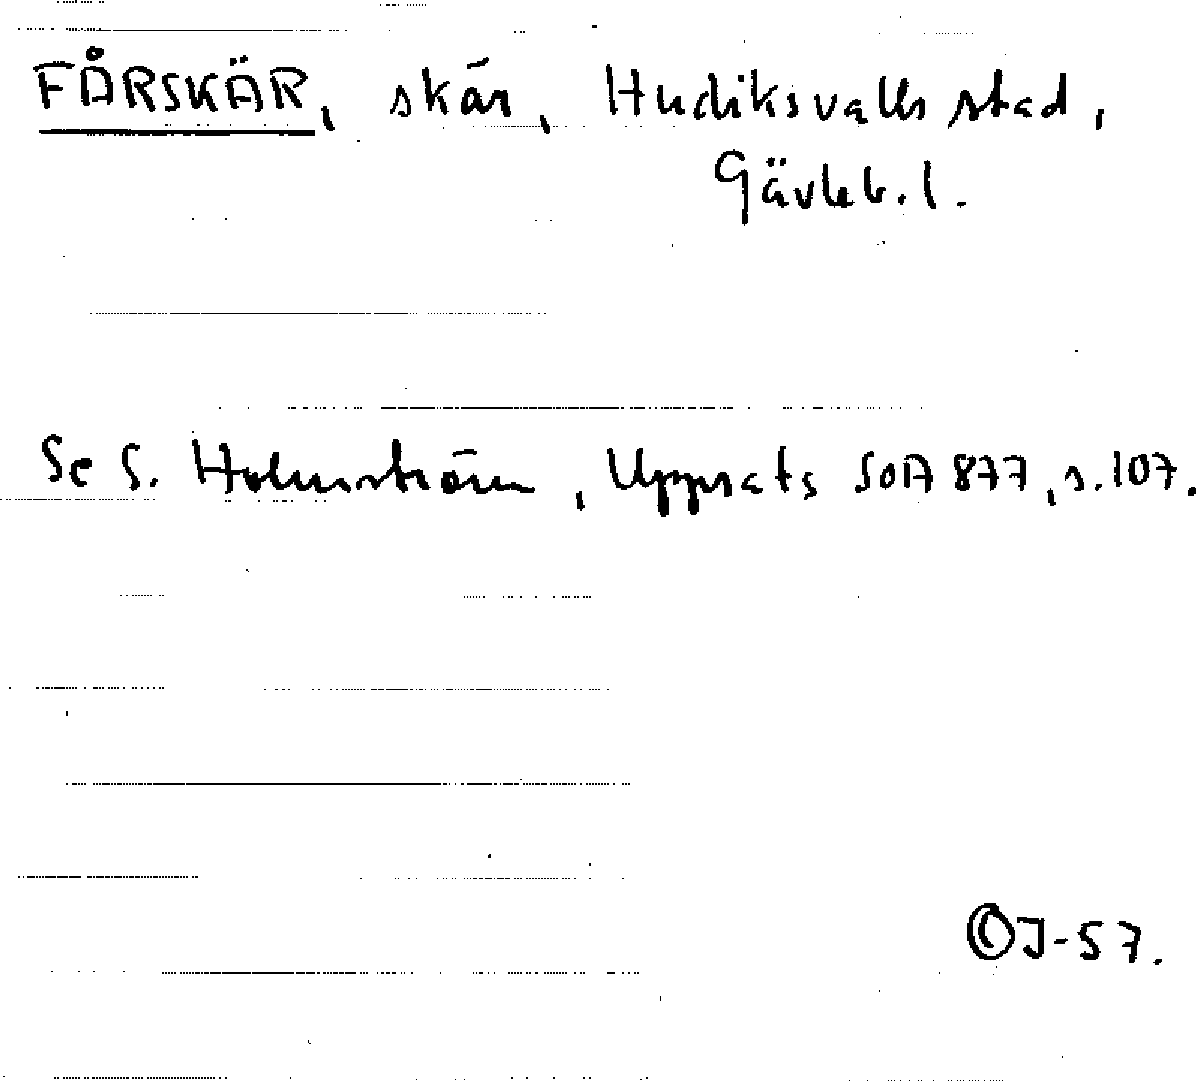 FÅRSKÄR, skär, Hudiksvalls stad,
Gävleb. l.
Se S. Holmström, Uppsats SOA 877, s. 107.
©J-57.